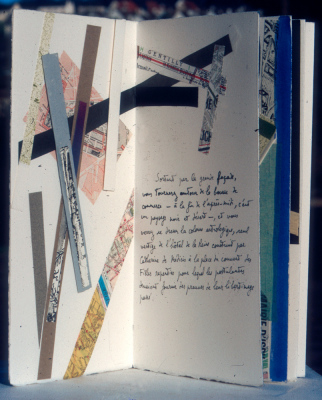 GENTILL
Sortant par la grande façade,
nous tournons autour de la bourse de
commerce – à la fin de l'après-midi, c'est
un paysage noir et désert –, et nous
voyons se dresser la colonne astrologique, seul
vestige de l'Hôtel de la Reine construit par
Catherine de Médicis à la place du couvent des
Filles repenties pour lequel les postulantes
devaient fournir des preuves de leur libertinage
passé.